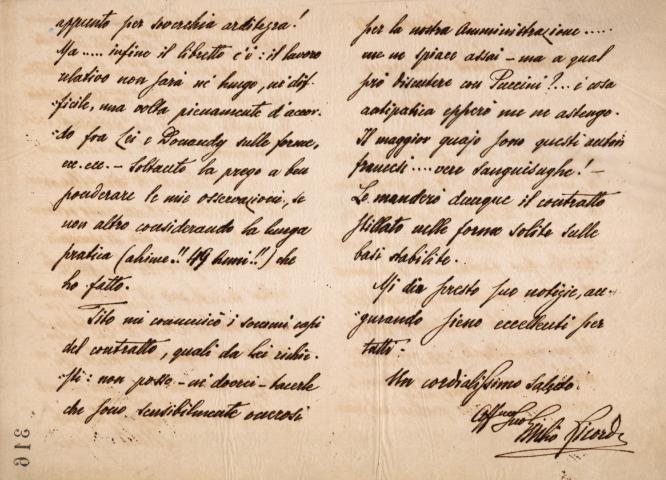 appunto per soverchia arditezza!
Ma ..... infine il libretto c'è: il lavoro
relativo non sarà né lungo, né dif-
-ficile, una volta pienamente d'accor-
-do fra Lei e Donaudy sulle forme,
ec. ec. - Soltanto la prego a ben
ponderare le mie osservazioni, se
non altro considerando la lunga
pratica (ahime!! 49 anni!!) che
ho fatto.
Tito mi comunicò i sommi capi
del contratto, quali da Lei richie-
-sti: non posso - né dovrei - tacerle
che sono sensibilmente onerosi
per la nostra Amministrazione .....
me ne spiace assai - ma a qual
prò discutere con Puccini?... è cosa
antipatica epperò me ne astengo.
Il maggior guajo sono questi autori
francesi .... vere sanguisughe! -
Le manderò dunque il contratto
stillato nelle forme solite sulle
basi stabilite.
Mi dia presto sue notizie, au-
-gurando sieno eccellenti per
tutti.
Un cordialissimo saluto.
Suo
Giulio Ricordi
916